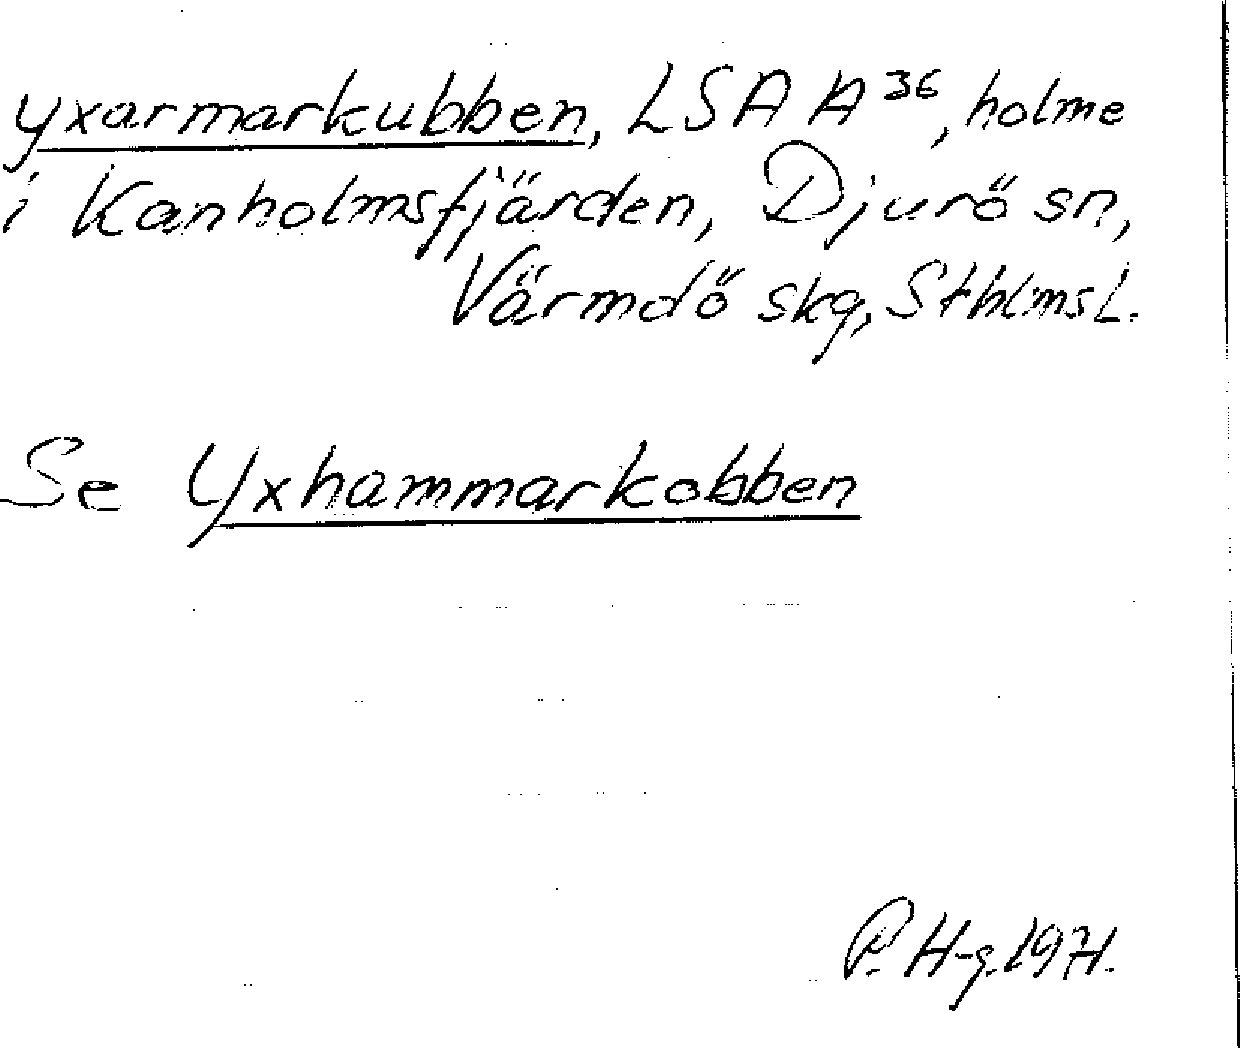 yxarmarkubben, LSA A 36, holme
i Kanholmsfjärden, Djurö sn,
Värmdö skg, Sthlms L.
Se Yxhammarkobben
P. H-g. 1971.